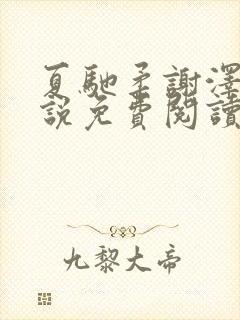 夏馳柔謝澤
說免費閱讀
九黎大帝